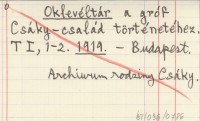 Oklevéltár a gróf
Csáky-család történetéhez.
T I, 1-2. 1919. - Budapest.
Archiwum rodziny Csáky.